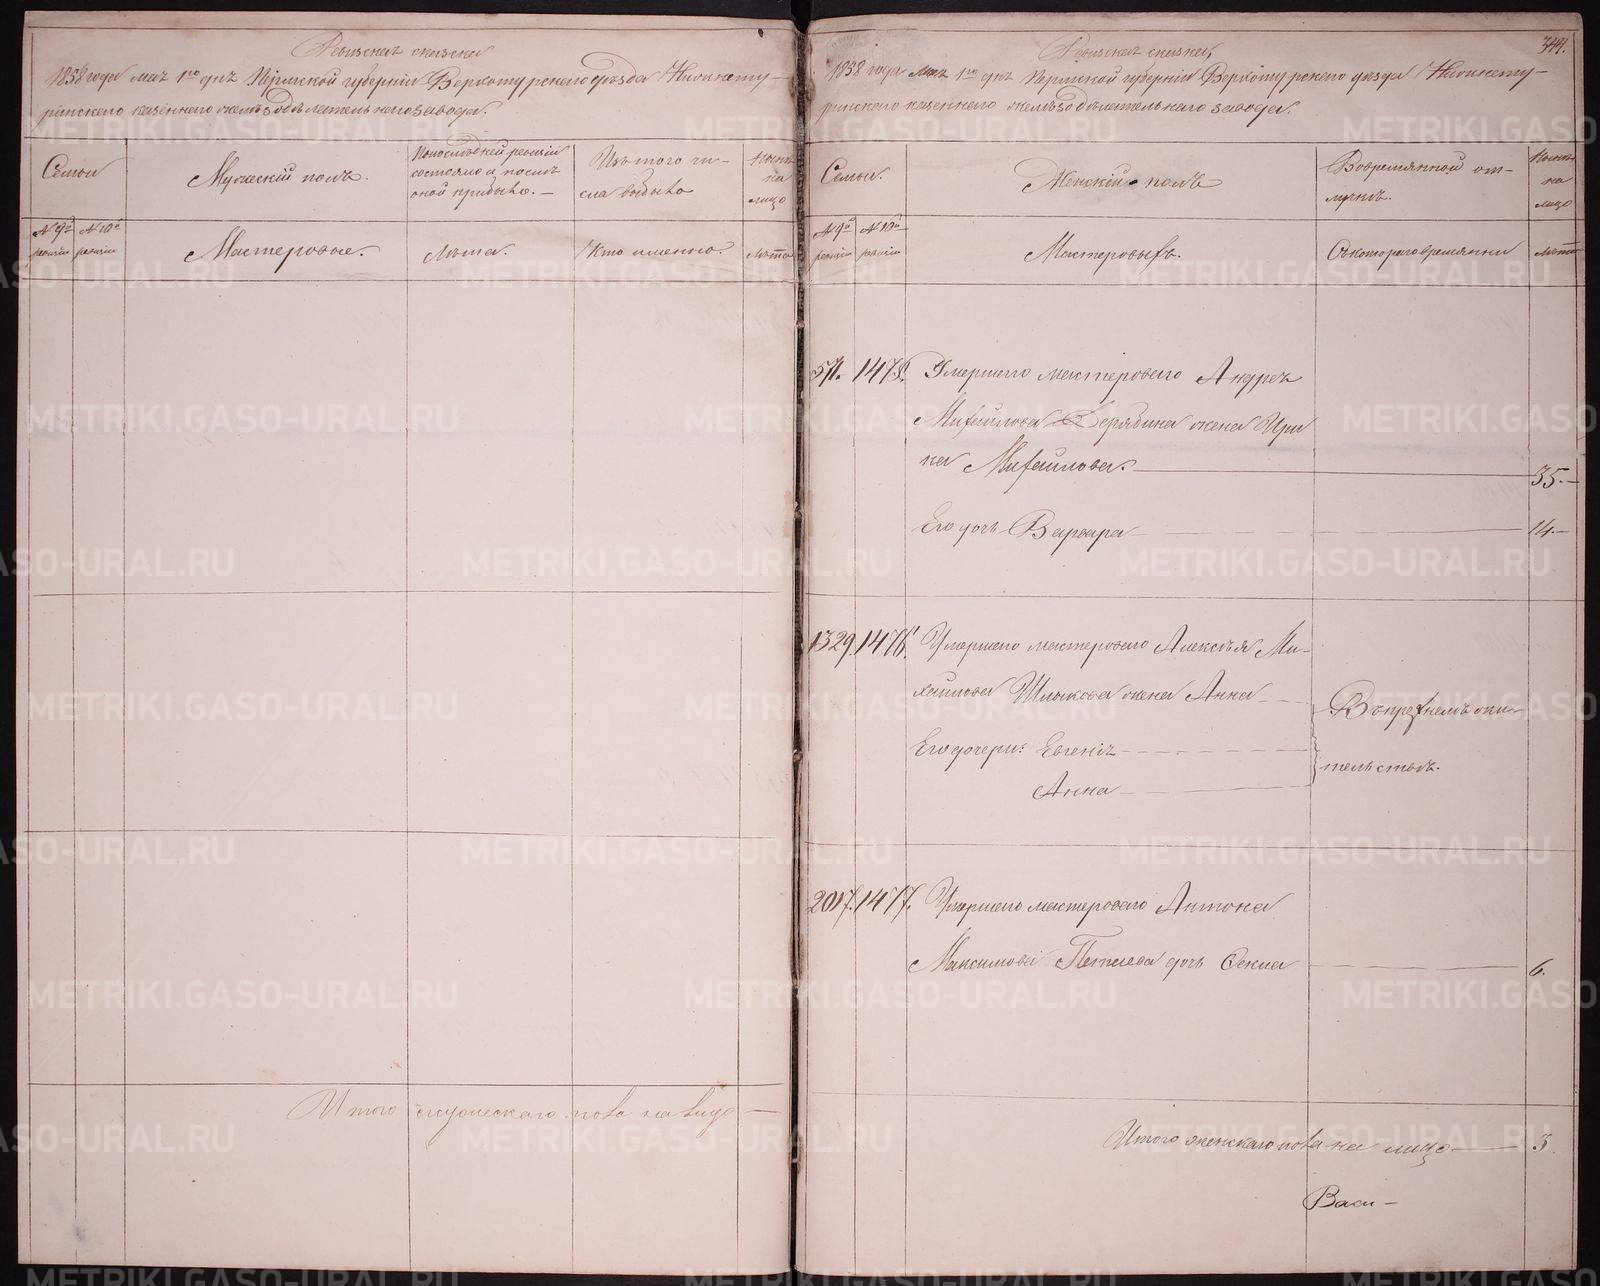 Ревизская сказка
1858 года мая 1го дня Пермской губернiи Верхотурского уѣзда Нижнету-
ринского казеннаго желѣзодѣлательнаго завода.
Семьи
Мужескiй полъ.
По послѣдней ревизiи
состояло и послѣ
оной прибыло.
Изъ того чи-
сла выбыло
Нынѣ
на
лицо
№ 9й ревизiи
№ 10й ревизiи
Мастеровые.
Лѣта.
Кто именно.
Лѣта
Итого мужескаго пола на лицо —
344.
Ревизская сказка,
1858 года мая 1го дня Пермской губернiи Верхотурского уѣзда Нижнету-
ринского казеннаго желѣзодѣлательнаго завода.
Семьи.
Женскiй полъ
Во временной от-
лучкѣ.
Нынѣ
на
лицо
№ 9й ревизiи
№ 10й ревизiи
Мастеровыхъ.
Съ котораго времяни
лѣта
571. 1475. Умершего мастероваго Андрея
Михайлова Дерябина жена Ири
на Михайлова. — 35. —
Его дочь Варвара — 14. —
1329. 1476. Умершего мастероваго Алексѣя Ми-
хайлова Шлыкова жена Анна
Въ прежнемъ жи-
Его дочери: Евгенiя
тельствѣ.
Анна
2017. 1477. Умершего мастероваго Антона
Максимова Пѣтелева дочь Фекла — 6.
Итого женскаго пола на лицо — 3
Васи —
METRIKI.GASO-URAL.RU